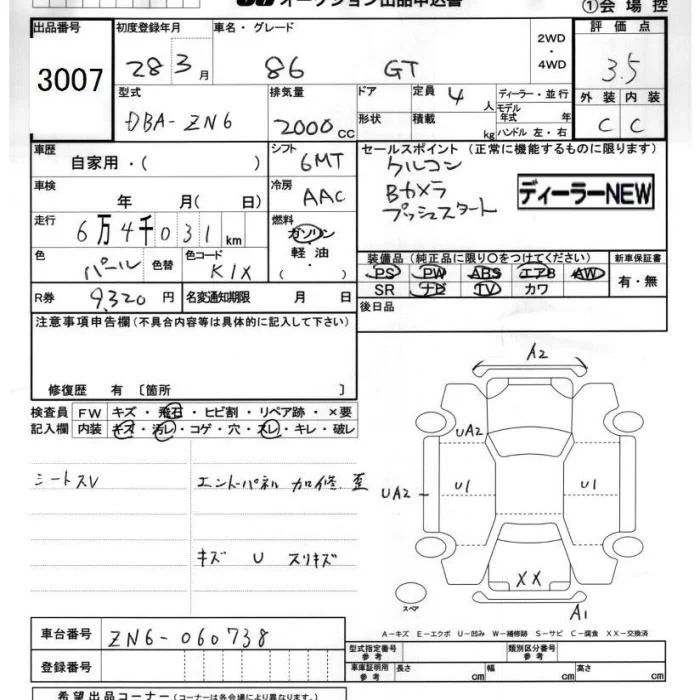 オークション出品申込書
①会場控
出品番号
3007
初度登録年月
28 3月
車名・グレード
86 GT
2WD
・
4WD
評価点
3.5
外装 内装
C C
型式
DBA-ZN6
排気量
2000cc
ドア
形状
定員 4人
積載 kg
ディーラー・並行
モデル年式 年
ハンドル 左・右
車歴
自家用・( )
シフト
6MT
セールスポイント (正常に機能するものに限ります)
クルコン
Bカメラ
プッシュスタート
ディーラーNEW
車検
年 月( 日)
冷房
AAC
走行
6万4千031km
燃料
ガソリン
軽油
・( )
色
パール
色替
色コード
K1X
装備品 (純正品に限り〇をつけてください)
PS PW ABS エアB AW
SR ナビ TV カワ
新車保証書
有・無
R券
9,320円
名変通知期限 月 日
後日品
注意事項申告欄 (不具合内容等は具体的に記入して下さい)
修復歴 有 〔箇所 〕
検査員記入欄
FW キズ・飛石・ヒビ割・リペア跡・×要
内装 キズ・汚レ・コゲ・穴・スレ・キレ・破レ
シートスレ
エントーパネル 加修 歪
キズ U スリキズ
A2
UA2
UA2
U1
U1
XX
A1
スペア
A-キズ E-エクボ U-凹み W-補修跡 S-サビ C-腐食 XX-交換済
車台番号
ZN6-060738
登録番号
型式指定番号
参考
類別区分番号
参考
車庫証明用
参考
長さ cm
幅 cm
高さ cm
希望出品コーナー (コーナーは各会場により異なります。)